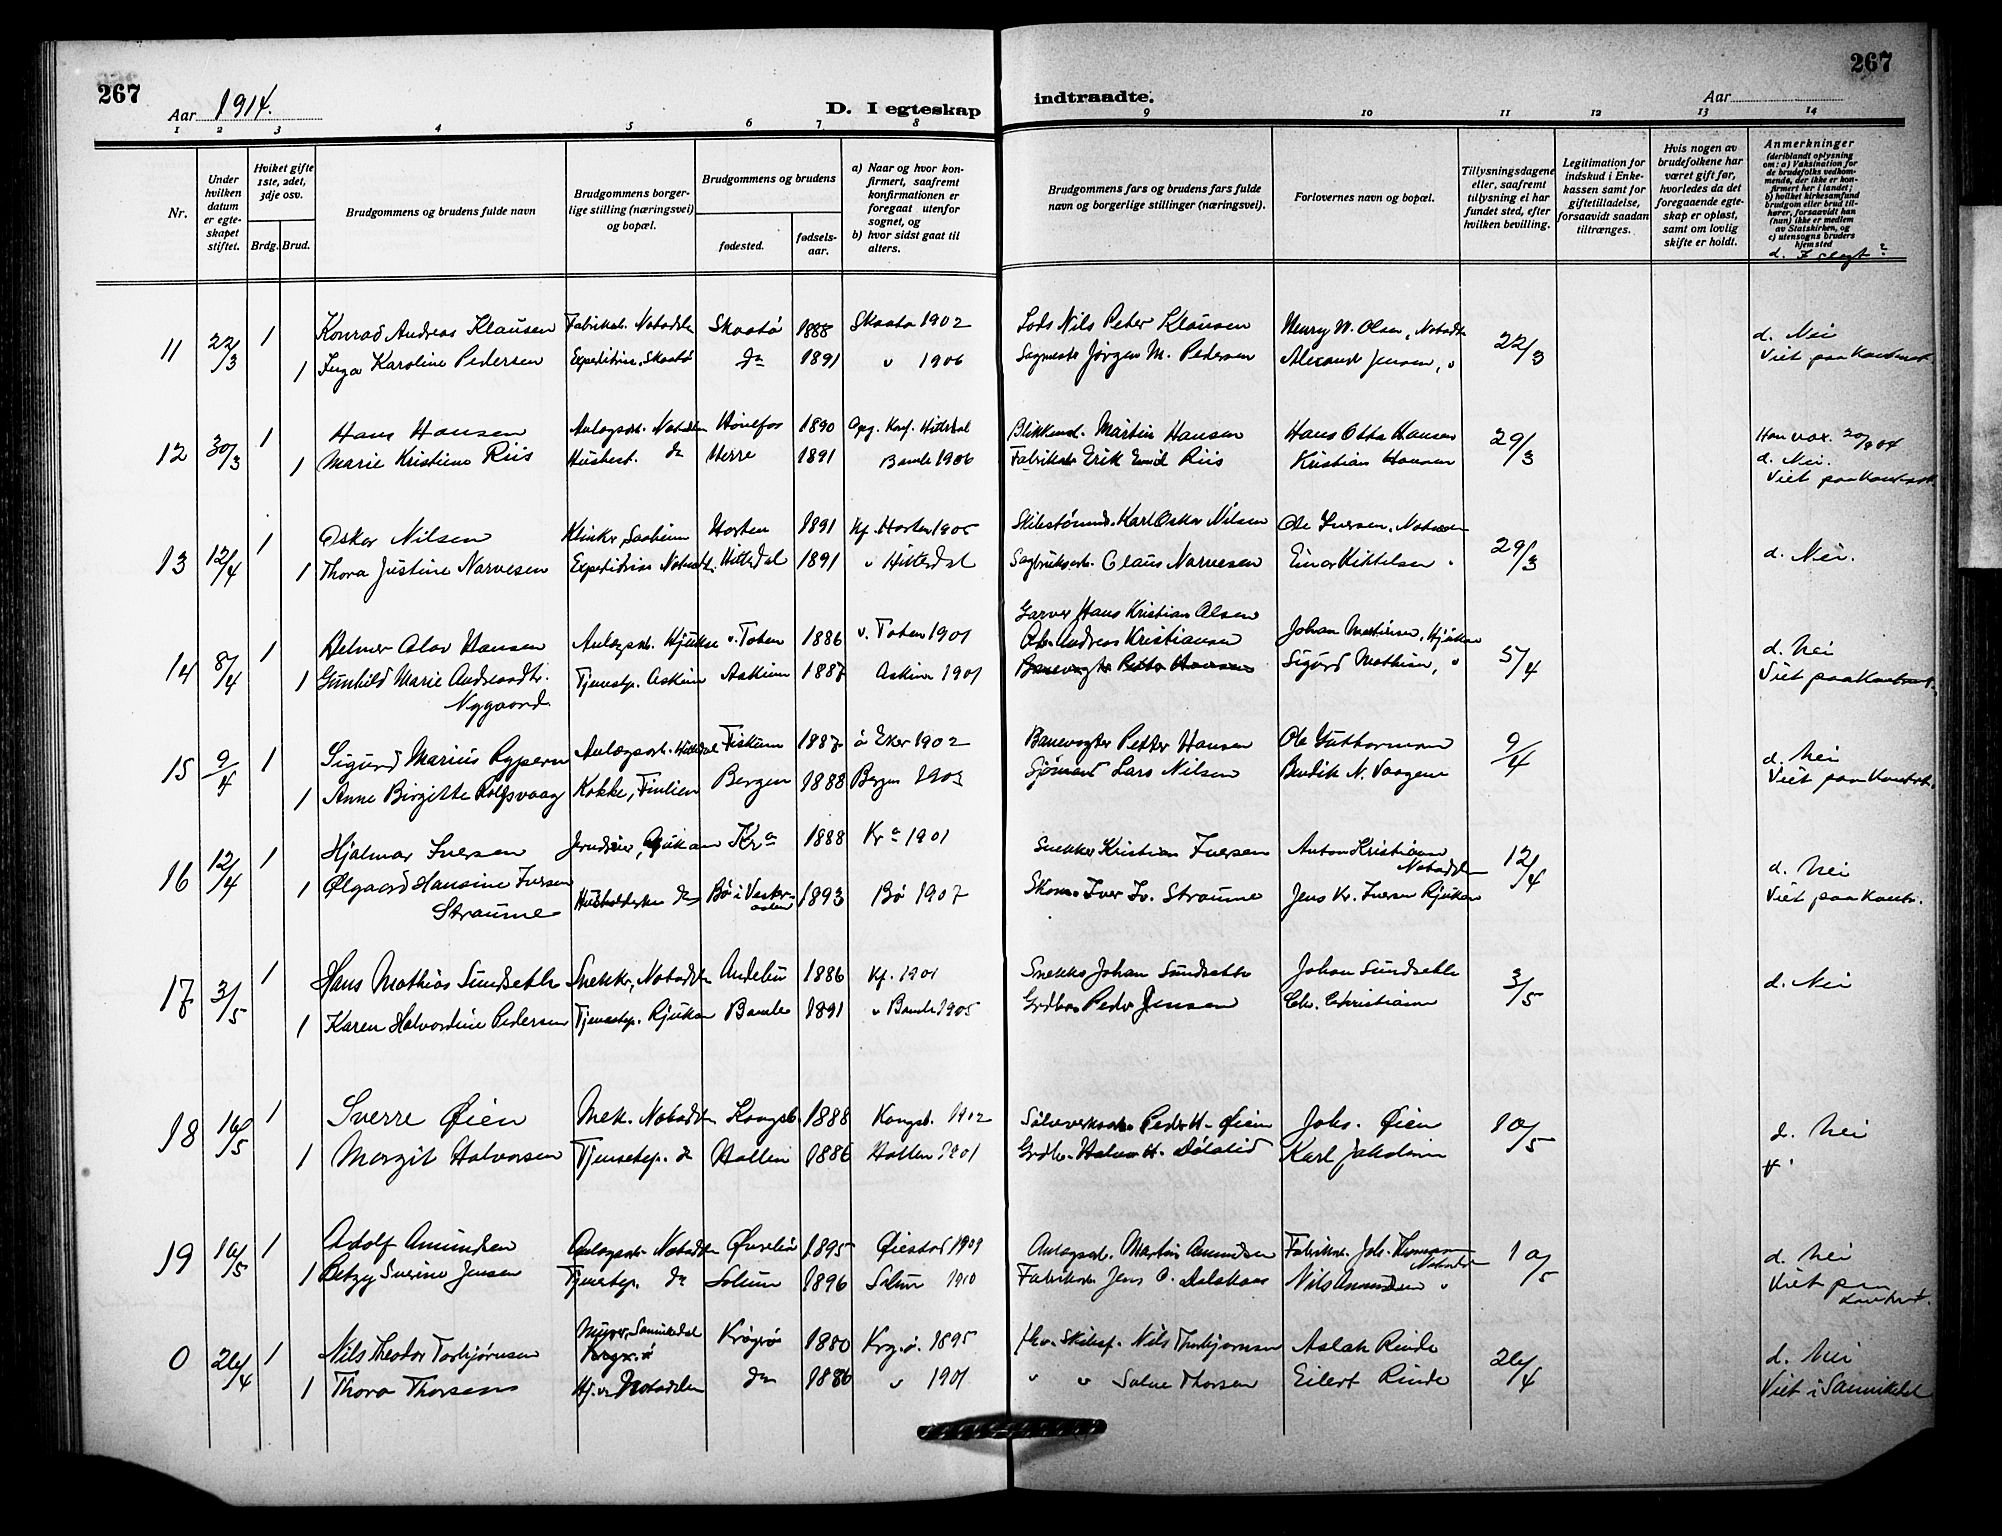 267
267
Aar 1914.
D. I egteskap
indtraadte.
Aar
1 2 3 4 5 6 7 8
9 10 11 12 13 14
Nr.
Under hvilken datum er egteskapet stiftet.
Hviket gifte 1ste, 2det, 3dje osv.
Brdg. Brud.
Brudgommens og brudens fulde navn
Brudgommens borgerlige stilling (næringsvei) og bopæl.
Brudgommens og brudens
fødested.
fødselsaar.
a) Naar og hvor konfirmert, saafremt konfirmationen er foregaat utenfor sognet, og
b) hvor sidst gaat til alters.
Brudgommens fars og brudens fars fulde navn og borgerlige stillinger (næringsvei).
Forlovernes navn og bopæl.
Tillysningsdagene eller, saafremt tillysning ei har fundet sted, efter hvilken bevilling.
Legitimation for indskud i Enkekassen samt for giftetilladelse, forsaavidt saadan tiltrænges.
Hvis nogen av brudefolkene har været gift før, hvorledes da det foregaaende egteskap er opløst, samt om lovlig skifte er holdt.
Anmerkninger
(deriblandt oplysning om: a) Vaksination for de brudefolks vedkommende, der ikke er konfirmert her i landet; b) hvilket kirkesamfund brudgom eller brud tilhører, forsaavidt han (hun) ikke er medlem av Statskirken, og c) utensogns bruders hjemsted
d. I slegt?
11 22/3 1 Konrad Andreas Klausen Fabrikarb. Notodden Skaatø 1888 Skaatø 1902 Lods Nils Peter Klausen Henry W. Olsen, Notodd. 22/3 d. Nei
1 Inga Karoline Pedersen Expeditrice, Skaatø do 1891 " 1906 Sagmester Jørgen M. Pedersen Jensen, " Viet paa Kontoret.
12 30/3 1 Hans Hansen Anlægsarb. Notodden Hønefos 1890 Opg. Konf. Hitterdal Blikkensl. Martin Hansen Hans Otto Hansen 29/3
1 Marie Kristine Riis Husbest. do Herre 1891 Bamle 1906 Fabrikarb. Erik Emil Riis Kristian Hansen d. Nei.
Viet paa Kontoret.
13 12/4 1 Oskar Nilsen Saaheim Horten 1891 Kf. Horten 1905 Karl Oskar Nilsen Ole Iversen, Notodden 29/3 d. Nei.
1 Thora Justine Narvesen Expeditrice Notodd. Hitterdal 1891 " Hitterdal Sagbruksarb. Claus Narvesen Einar Kittelsen "
14 8/4 1 Helmer Olav Hansen Anlægsarb. Hjukse v. Toten 1886 v. Toten 1901 Garver Hans Kristian Olsen Johan Martinsen, Hjukse 5/4 d. Nei
1 Gunhild Marie Andreasdtr. Nygaard Tjenestep. Askim Askim 1887 Askim 1901 Andreas Kristiansen Sigurd Mathisen, " Viet paa Kontoret.
Banevogter Petter Hansen
15 9/4 1 Sigurd Marius Anlægsarb. Hitterdal Fiskum 1887 ø Eker 1902 Banevogter Petter Hansen Ole Guttormsen 9/4 d. Nei
1 Anne Birgitte Rolfsvaag Kokke, Tinlien Bergen 1888 Bergen 1903 Sjømand Lars Nilsen Bendik N. Vaagene Viet paa Kontoret.
16 12/4 1 Hjalmar Iversen Rjukan Kra 1888 Kra 1901 Snekker Kristian Iversen Anton Kristiansen Notodden 12/4 d. Nei
1 Ølgaard Hansine Iversen Straume Husholderske do Bø i Vesteraalen 1893 Bø 1907 Skom. Iver Iv. Straume Jens Kr. Iversen Rjukan Viet paa Kontr.
17 3/5 1 Hans Mathias Sundseth Snekker, Notodden Andebu 1886 Kf. 1901 Snekker Johan Sundseth Johan Sundseth 3/5 d. Nei
1 Karen Halvordine Pedersen Tjenestep. Rjukan Bamle 1891 " Bamle 1905 Grdbr. Peder Jensen Chr. Christiansen
18 10/5 1 Sverre Øien Mek. Notodden Kongsb. 1888 Kongsb. 1902 Peder H. Øien Johs. Øien 10/5 d. Nei
1 Margit Halvorsen Tjenestep. do Hollen 1886 Hollen 1901 Grdbr. Halvor H. Karl Jakobsen
19 10/5 1 Adolf Amundsen Anlægsarb. Notodden 1895 Øiestad 1909 Anlægsarb. Martin Amundsen Fabrikarb. Joh. Notodden 10/5 d. Nei
1 Betzy Severine Jensen Tjenestep. do Solum 1896 Solum 1910 Fabrikarb. Jens O. Nils Amundsen " Viet paa Kontoret.
0 26/4 1 Nils Theodor Torbjørnsen Murer, Sannikedal Kragerø 1880 Krag.ø. 1895 Nils Thorbjørnsen Aslak Rinde 26/4 d. Nei
1 Thora Thorsen Notodden do 1886 " 1901 " " Salve Thorsen Eilert Rinde Viet i Sannikedal